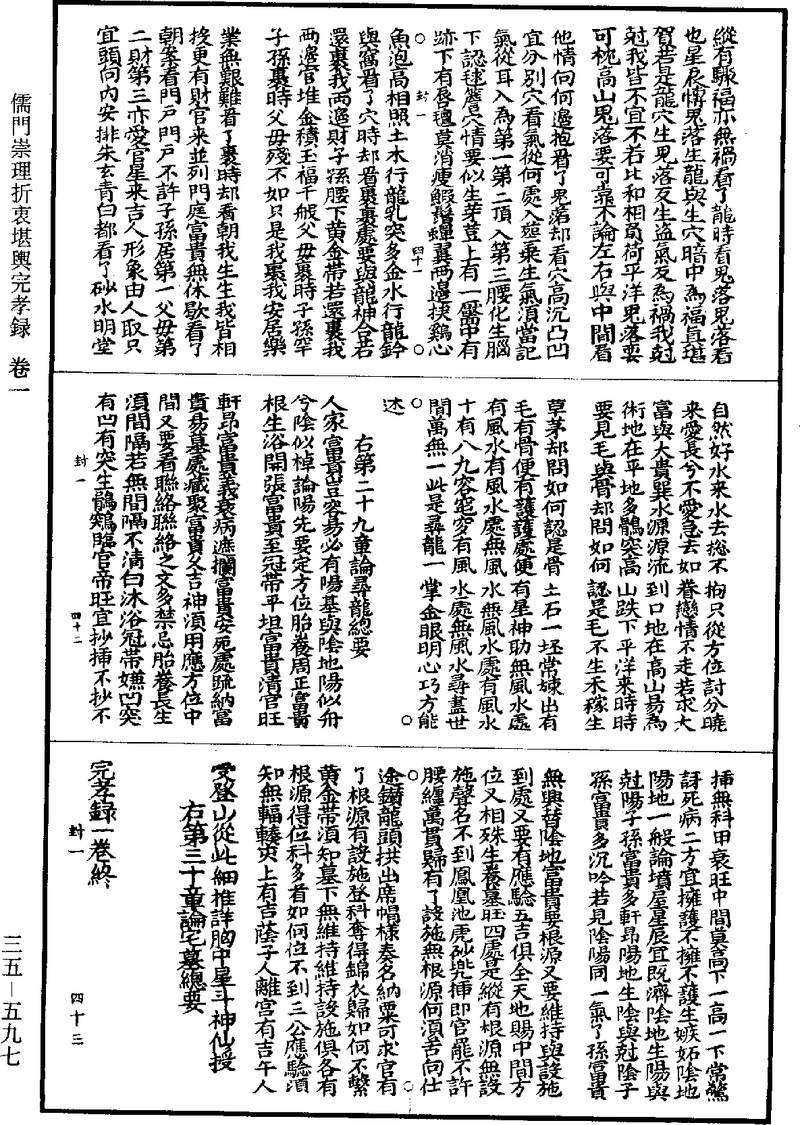 儒門崇理折衷堪輿完孝録 卷一
縱有驟福亦無禍看了龍時看鬼落鬼落看
也星辰博鬼落生龍與生穴暗中為福真堪
賀若是龍穴生鬼落反生盜氣反為禍我尅
尅我皆不宜不若比和相負荷平洋鬼落要
可枕高山鬼落要可靠不論左右與中間看
他情向何邊抱看了鬼落却看穴高沉凸凹
宜分別穴看氣從何處入蓮乗生氣湏當記
氣從耳入為第一第二頂入第三腰化生腦
下認毬簷穴情要似生芽荳上有一臀中有
跡下有唇毡莫消瘦鰕鬚蟬翼兩邊挟鷄心
魚泡高相照土木行龍乳突多金水行龍鈐
與窩看了穴時却看裹裹處要與龍神合若
還裹我两邊財子孫腰下黄金帯若還裹我
两邊官堆金積玉福千般父毋裹時子孫罕
子孫裹時父毋殘不如只是我裹我安居樂
業無艱難看了裹時却看朝我生生我皆相
投更有財官来並列門庭富貴無休歇看了
朝案看門戸門戸不許子孫居第一父毋第
二財第三亦愛官星来吉人形象由人取只
宜頭向内安排朱玄青白都看了砂水明堂
封一
四十一
自然好水来水去揔不
来愛長兮不愛急去如
富與大貴巽水源源流
術地在平地多鶻突高
要見毛與骨却問如何
草茅却問如何認是骨
毛有骨便有護護處便
有風水有風水處無風
十有八九容龕穵有風
間萬無一此是尋龍一
述
拘只從方位討分曉
眷戀情不走若求大
到口地在高山易為
山跌下平洋来時時
認是毛不生禾稼生
土石一坯常煉出有
有星神助無風水處
水無風水處有風水
水處無風水尋盖世
掌金眼明心巧方能
右第二十九章論尋龍總要
人家富貴豈容易必有陽基與陰地陽似舟
兮陰似棹論陽先要定方位胎養周正富貴
根生浴開張富貴至冠帯平坦富貴清官旺
軒昂富貴義衰病遮攔富貴安死處䟽納富
貴易墓處藏聚富貴久吉神湏用應方位中
間又要看聯絡聯絡之文多禁忌胎養長生
湏間隔若無間隔不清白沐浴冠帯嫌凹突
有凹有突生鶻鶟臨官帝旺宜抄挿不抄不
封一
四十二
挿無科甲衰旺中間莫高下一高一下常驚
訝死病二方宜擁護不擁不護生嫉妬陰地
陽地一般論墳屋星辰宜既濟陰地生陽與
尅陽子孫富貴多軒昂陽地生陰與尅陰子
孫富貴多沉吟若見陰陽同一氣了孫富貴
無興替陰地富貴要根源又要維持與設施
到處又要有應驗五吉俱全天地賜中間方
位又相殊生養墓旺四處是縱有根源無設
施聲名不到鳳凰池庚砂兠挿即官罷不許
腰纏萬貫歸有了設施無根源何湏苦向仕
途鑚龍頭拱出席帽様奏名納粟可求官有
了根源有設施登科奪得錦衣歸如何不繫
黄金帯湏知墓下無維持維持設施俱各有
根源得位科多首如何位不到三公應驗湏
知無輻輳夾上有吉蔭子人離宮有吉午人
受登山從此細推詳胸中星斗神仙授
右第三十章論宅墓總要
完孝録一卷終
封一
四十三
三五－五九七